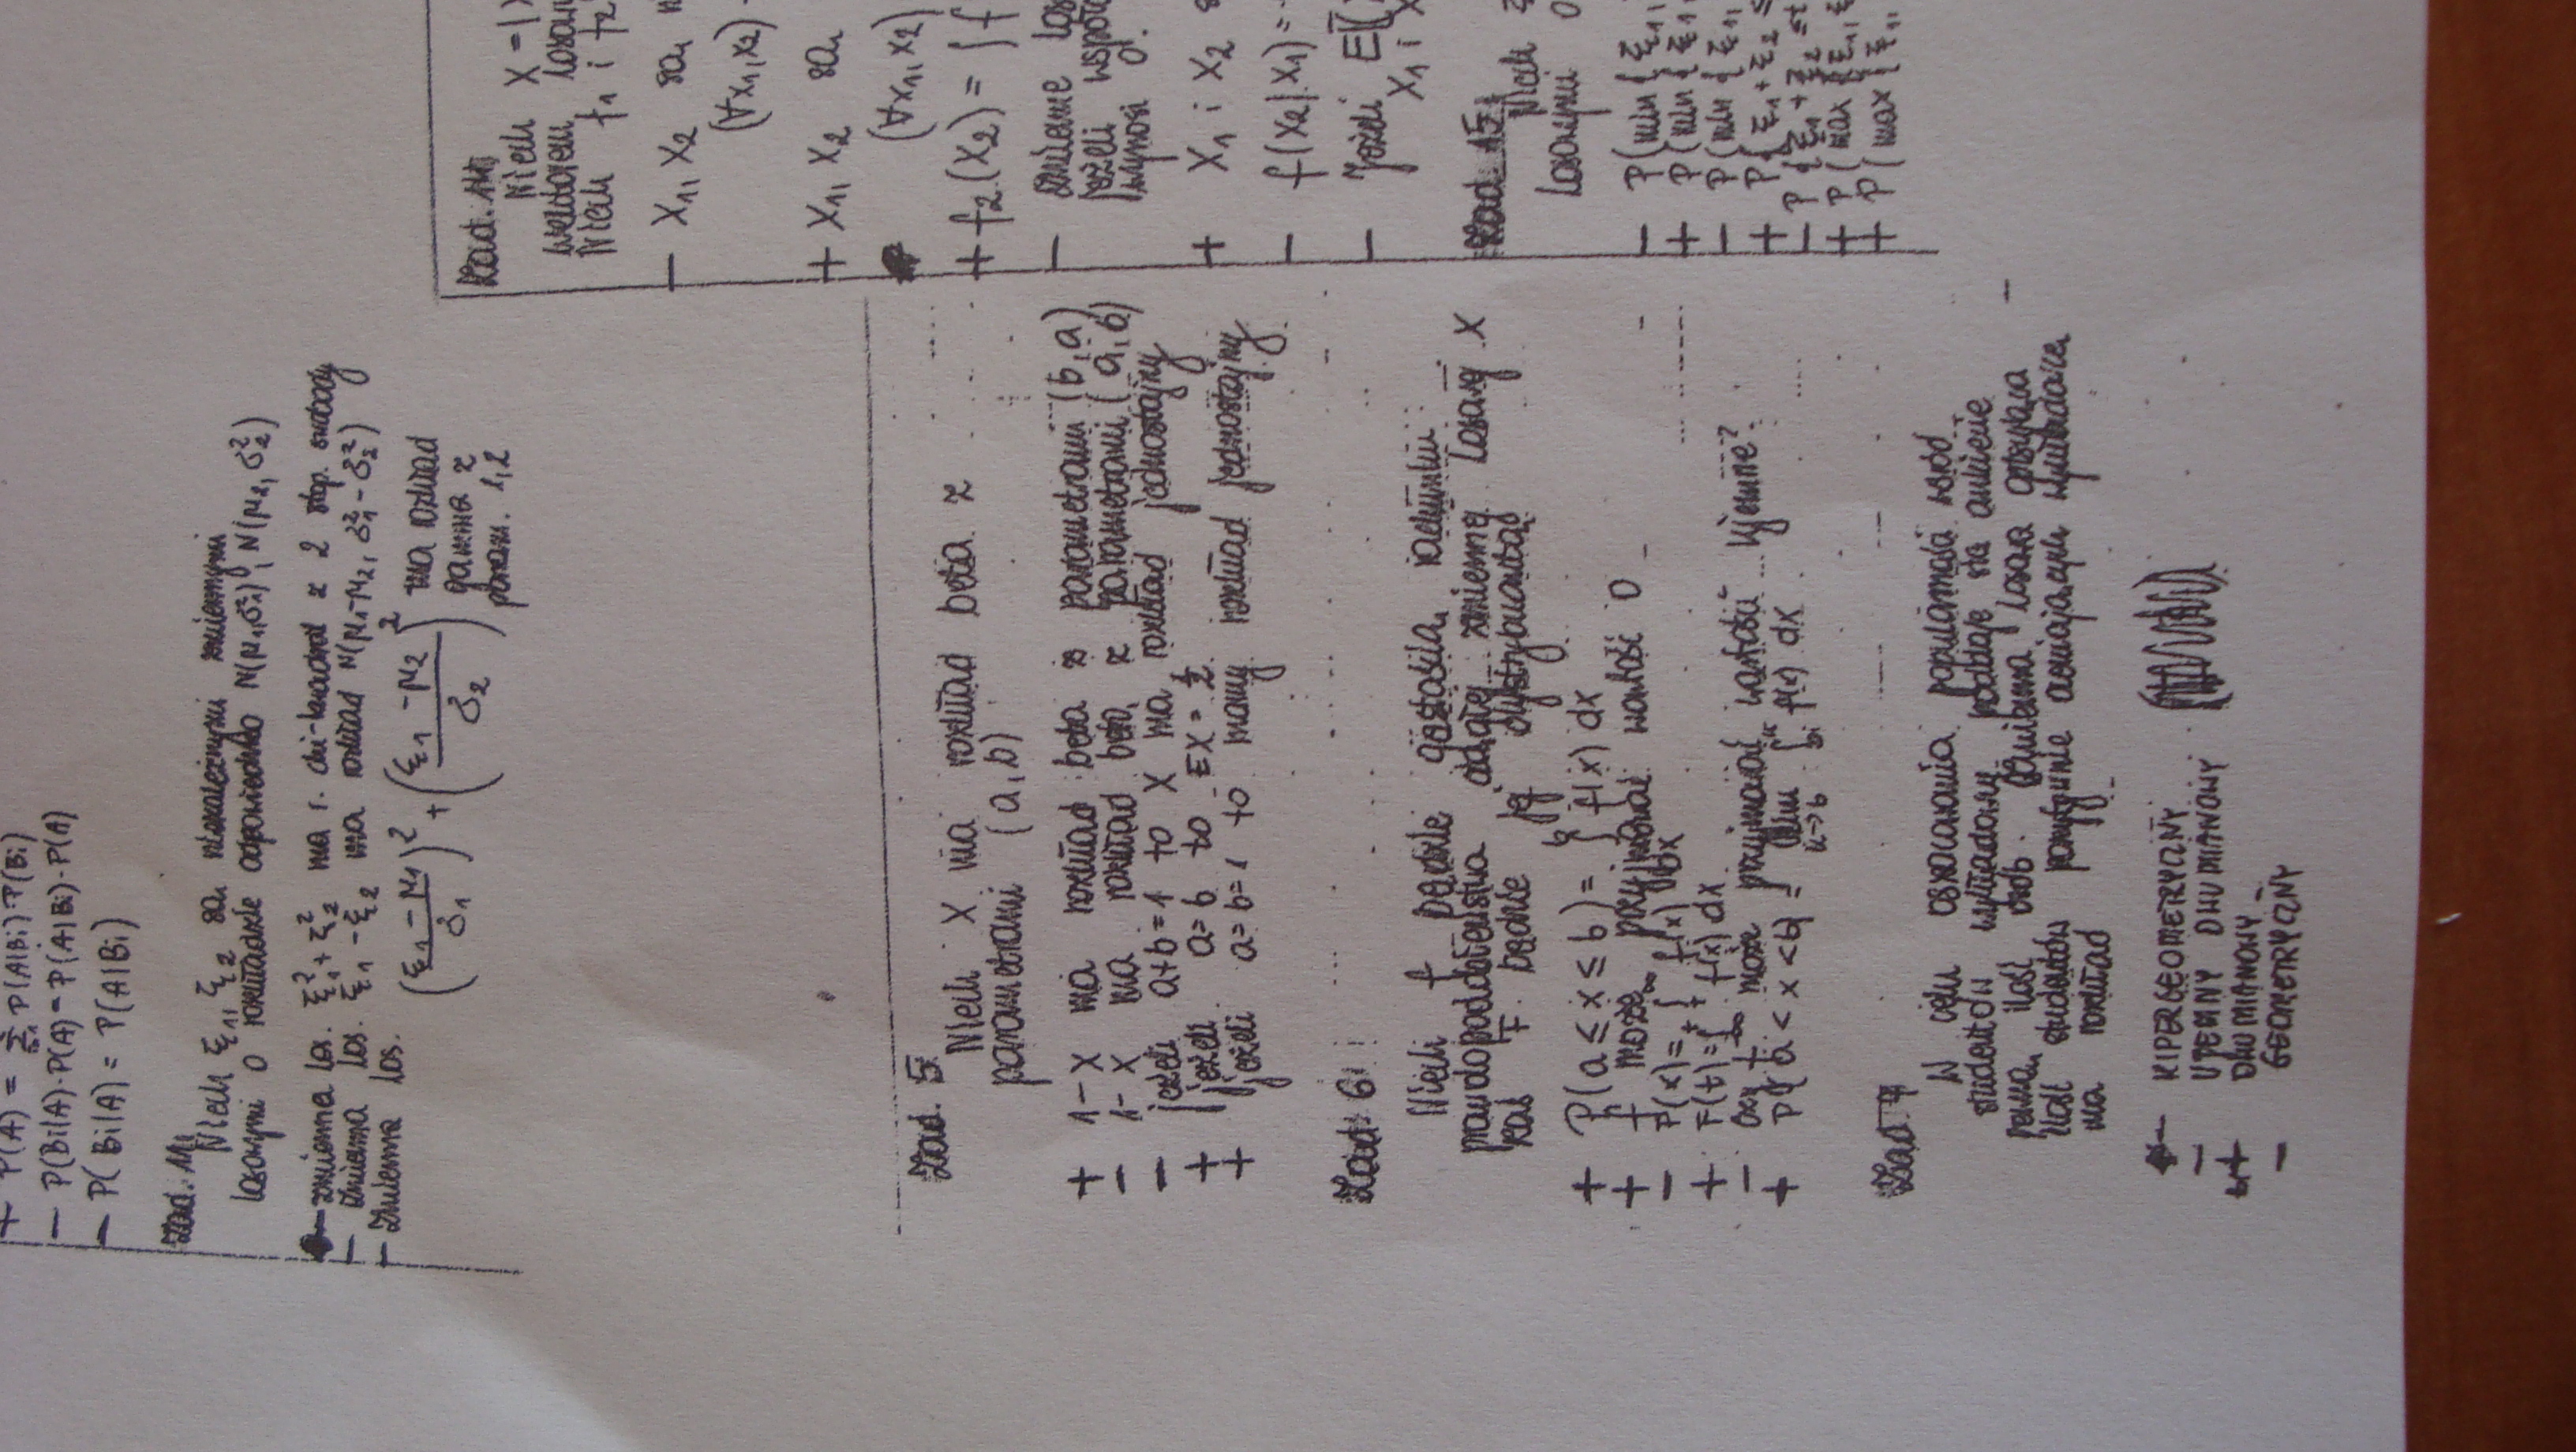 + P(A) = Σ P(A|Bi)·P(Bi)
- P(Bi|A)·P(A) = P(A|Bi)·P(A)
- P(Bi|A) = P(A|Bi)
Zad. 11
Niech ξ1, ξ2 są niezależnymi zmiennymi
losowymi o rozkładzie odpowiednio N(μ1,σ1²), N(μ2,σ2²)
- zmienna los. ξ1² + ξ2² ma r. chi-kwadrat z 2 stop. swobody
- zmienna los. ξ1 - ξ2 ma rozkład N(μ1-μ2, σ1² - σ2²)
- zmienna los. ((ξ1 - μ1)/σ1)² + ((ξ1 - μ2)/σ2)² ma rozkład
gamma z
param. 1,2
Zad. 5
Niech X ma rozkład beta z
parametrami (a,b)
+ 1-X ma rozkład beta z parametrami (b,a)
- 1-X ma rozkład beta z parametrami (a,b)
- jeżeli a+b=1 to X ma rozkład jednostajny
+ jeżeli a=b to EX = 1/2
+ jeżeli a=b=1 to mamy rozkład jednostajny
Zad. 6
Niech f będzie gęstością rachunku
prawdopodobieństwa ciągłej zmiennej losowej X
zaś F będzie jej dystrybuantą
+ P(a ≤ x ≤ b) = ∫ f(x) dx
+ f może przyjmować wartość 0
- F(x) = ∫ f(x) dx
+ F(t) = ∫ f(x) dx
- czy f może przyjmować wartości ujemne?
+ P{a < x < b} = lim ∫ f(x) dx
Zad. 7
W celu oszacowania popularności wśród
studentów wykładowcy poddaje się ankiecie
pewną ilość osób. Zmienna losowa opisująca
ilość studentów pozytywnie oceniających wykładowcę
ma rozkład
- HIPERGEOMETRYCZNY
- UJEMNY DWUMIANOWY
+ DWUMIANOWY
- GEOMETRYCZNY
Zad. 14
Niech X = (
wektorem losowym
Niech f1 i f2
- X1, X2 są n
(∀x1,x2)
+ X1, X2 są
(∀x1,x2)
+ f2(x2) = ∫ f
- zmienne los
jeżeli współ
wynosi 0.
+ X1 i X2 s
- f(x2|x1) =
- Jeżeli E(
X1 i X
Zad. 15
Niech ξ
losowymi o
- P(min{ξ1,
+ P(min{ξ1,
- P(min{ξ1,
+ P{ξ1 + ξ2 =
- P{ξ1 + ξ2 ≤
+ P(max{ξ1,
+ P(max{ξ1,